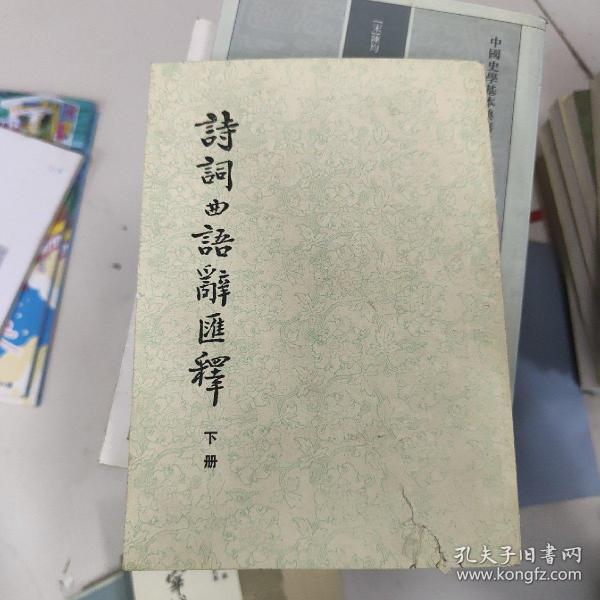 詩詞曲語辭匯釋
下册
[宋]陳均
中國史學基本典籍
孔夫子旧书网
www.kongfz.com